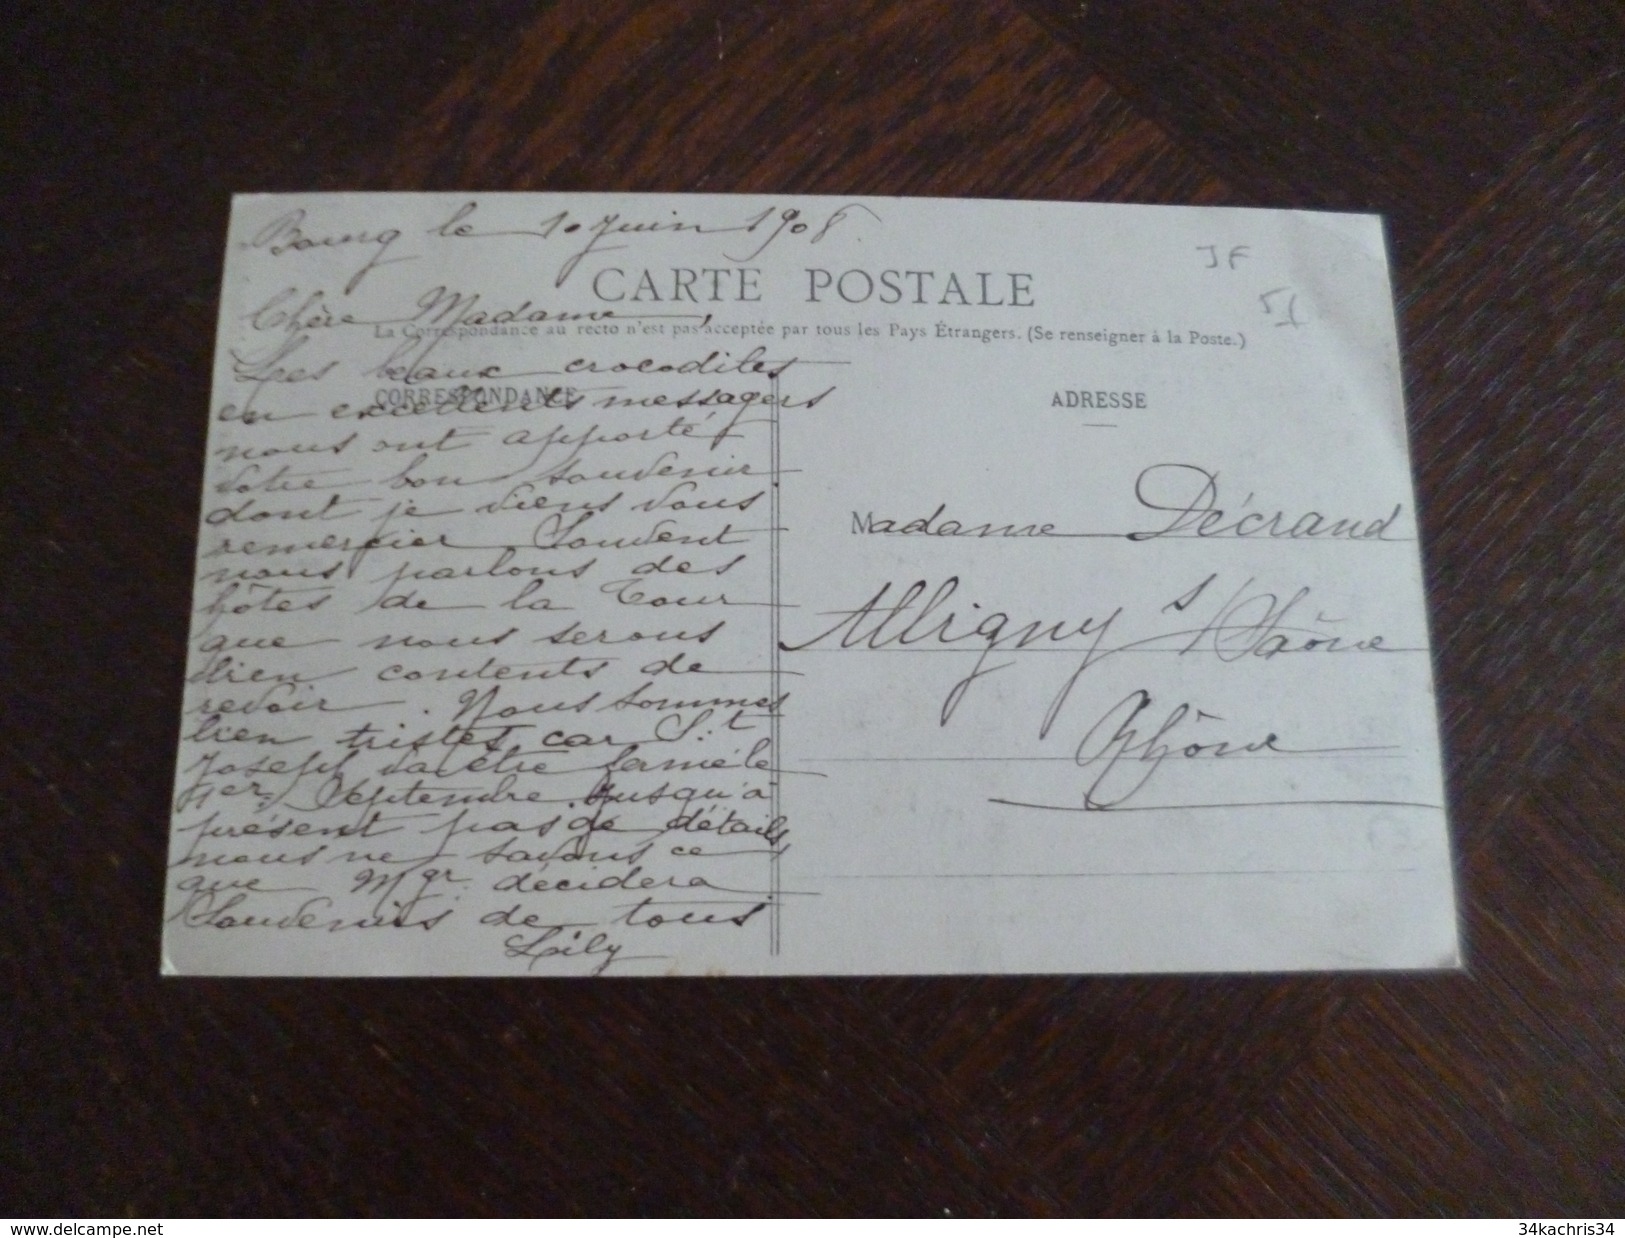 Bourg le 10 Juin 1908.
J F
CARTE POSTALE
Chère Madame,
51
La Correspondance au recto n'est pas acceptée par tous les Pays Étrangers. (Se renseigner à la Poste.)
Les beaux crocodiles
CORRESPONDANCE
ADRESSE
en excellents messagers
nous ont apporté
votre bon souvenir
dont je viens vous
remercier. Souvent
nous parlons des
hôtes de la Tour
que nous serons
bien contents de
revoir. Nous sommes
bien tristes car St
Joseph va être fermé le
1er Septembre. Jusqu'à
présent pas de détails,
nous ne savons ce
que Mgr décidera
Souvenirs de tous
Lily
Madame Décrand
Albigny s/Saône
Rhône
www.delcampe.net
34kachris34